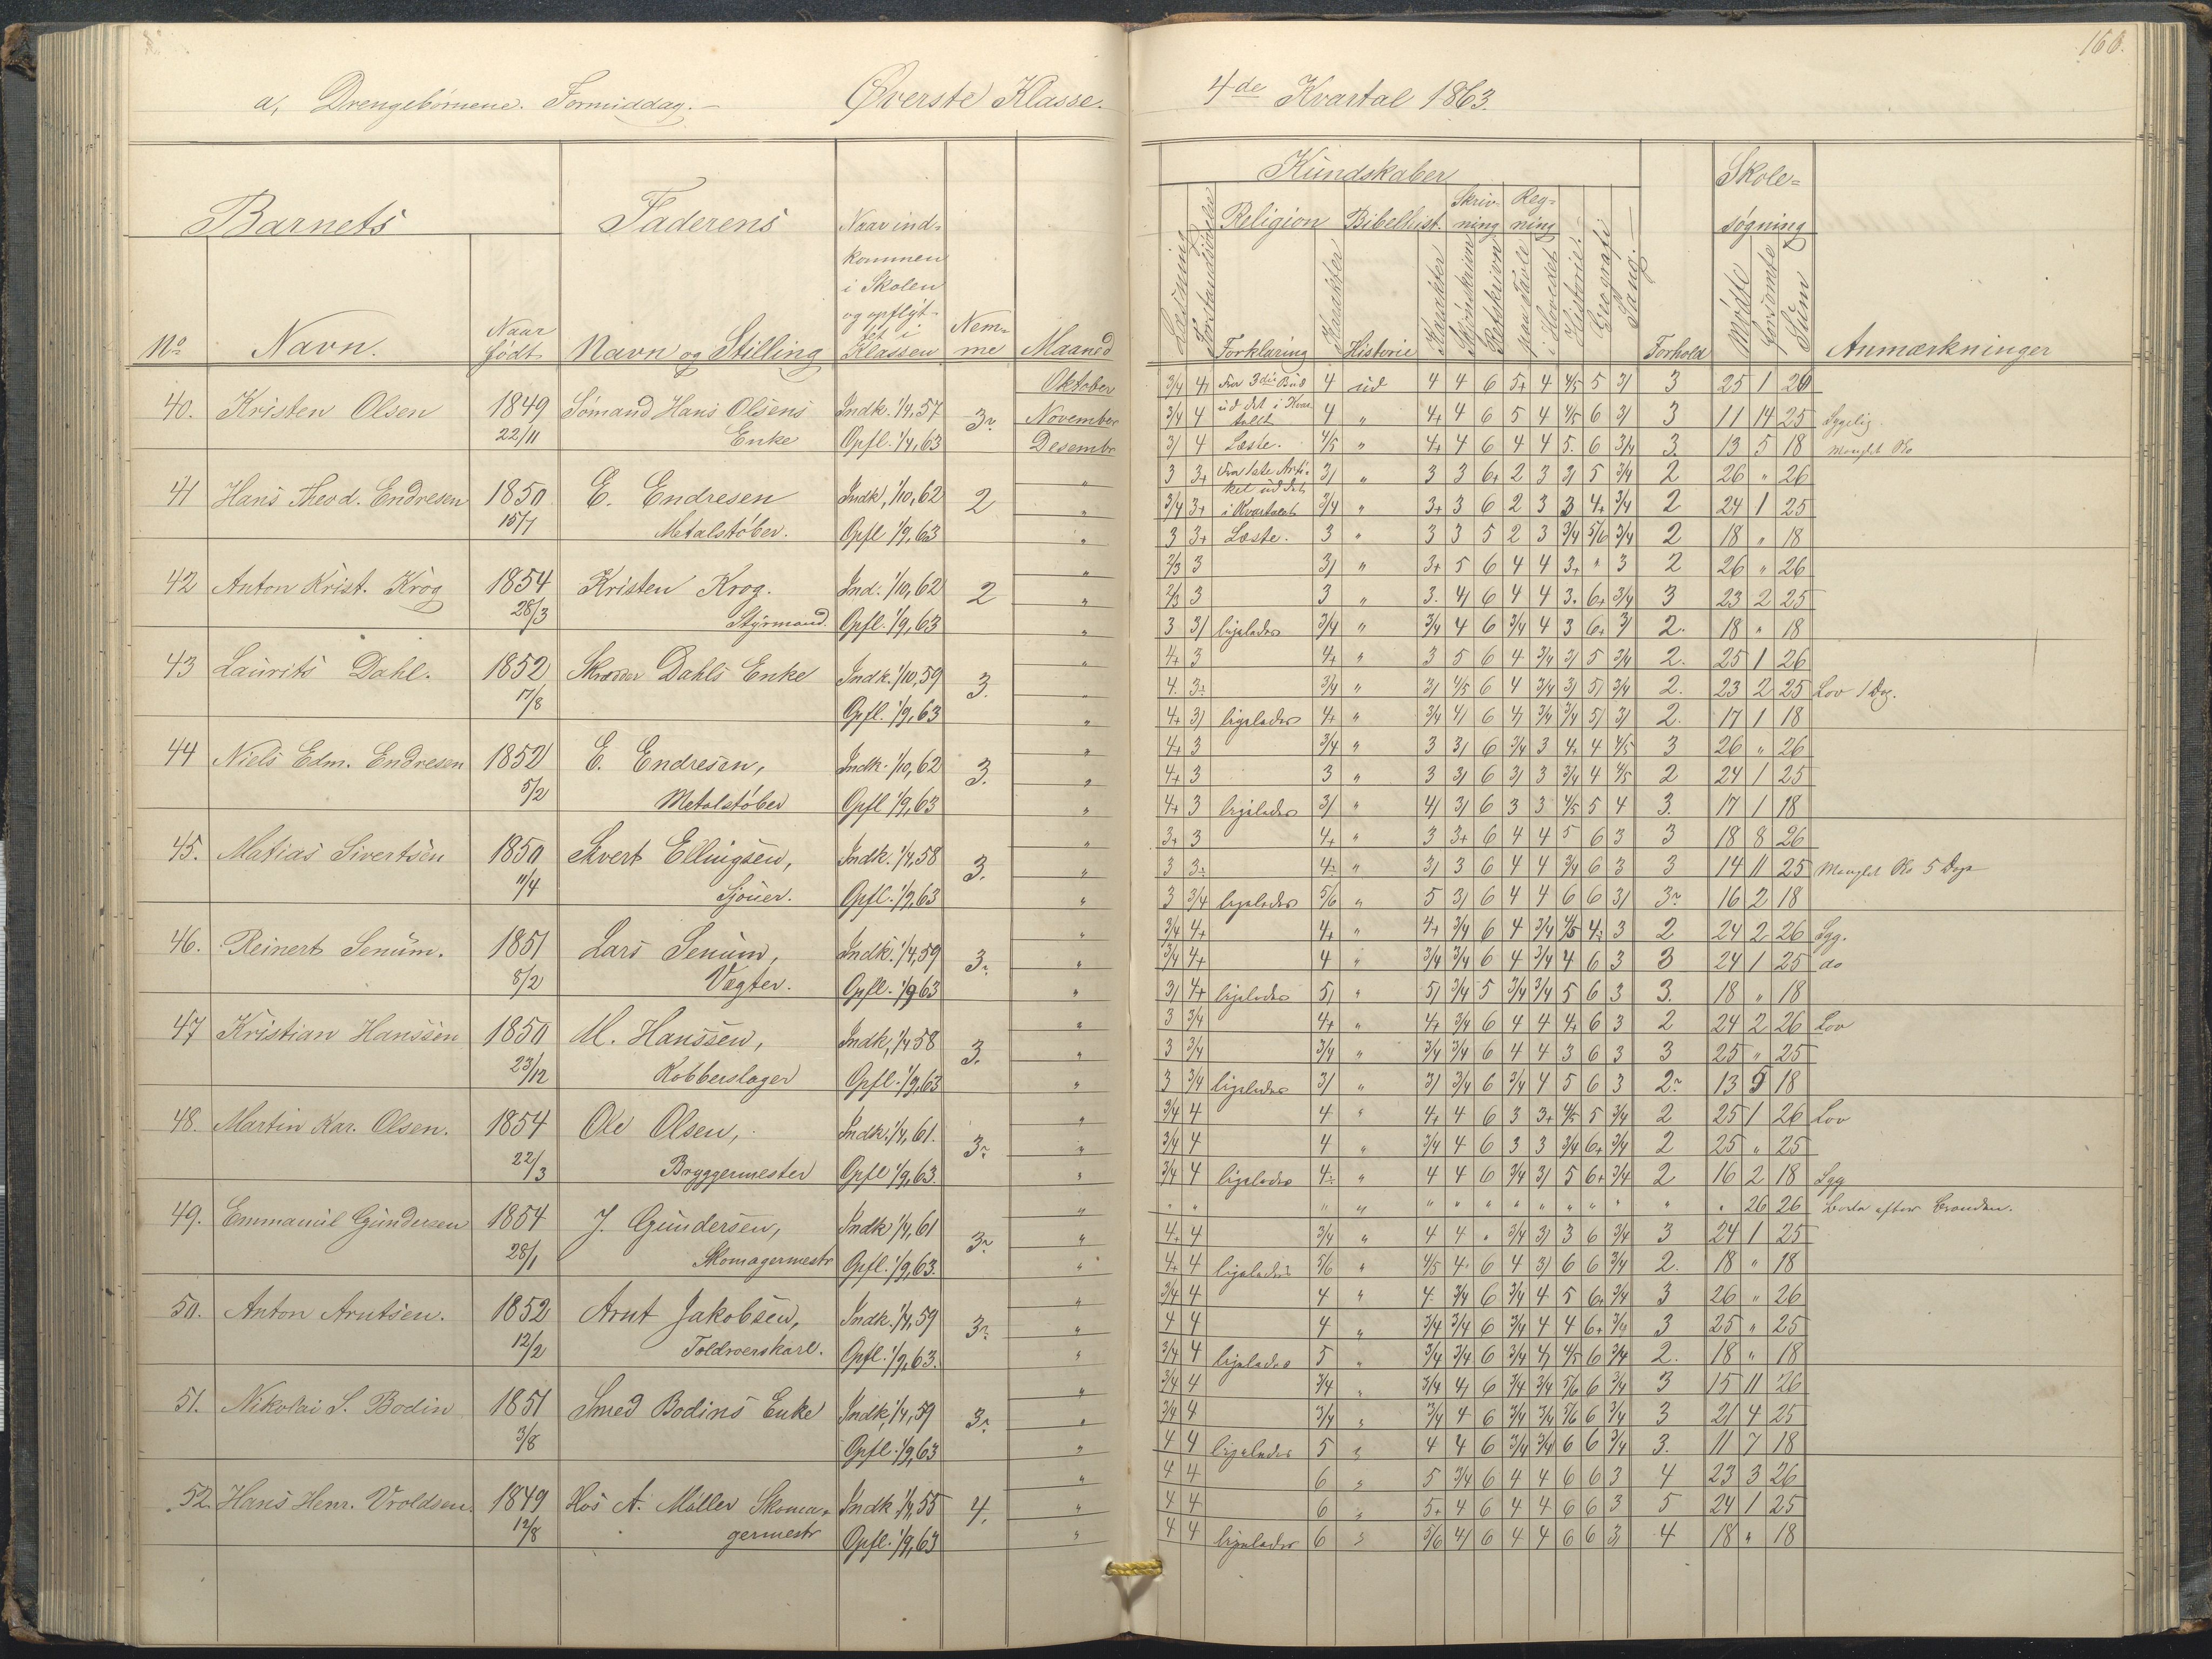 160.
a, Drengebørnene. Formiddag. – Øverste Klasse. 4de Kvartal 1863.
Barnets Faderens Naar ind-
kommen
i Skolen
og opflyt-
tet i
Klassen
No Navn. Naar
født Navn og Stilling Nem-
me Maaned
Kundskaber Skole-
søgning
Læsning Forstandsøvelse Religion Bibelhist. Skriv-
ning Reg-
ning Historie. Geografi Sang.
Forklaring Karakter Historie Karakter Skjønskrivn Retskrivn paa Tavle i Hovedet Forhold Mødte Forsømte Sum Anmærkninger
40. Kristen Olsen 1849 Sømand Hans Olsens Indk. 1/4, 57 Oktober 3/4 4/ Fra 3die Bud 4 ud 4 4 6 5+ 4 4/5 5 3/ 3 25 1 26
22/11 Enke Opfl. 1/4, 63 November 3/4 4 ud det i Kvar-
tallt 4 " 4+ 4 6 5 4 4/5 6 3/ 3 11 14 25 Sygelig.
Desembr 3/ 4 Læste. 4/5 " 4+ 4 6 4 4 5. 6 3/4 3 13 5 18 Manglet Sko
41 Hans Theod. Endresen 1850 E. Endresen Indk, 1/10, 62 2 " 3 3+ Fra 1ste Arti-
kel ud det 3/ " 3 3 6+ 2 3 3/ 5 3/4 2 26 " 26
15/7 Metalstøber. Opfl 1/9, 63 " 3/4 3+ i Kvartalet 3/4 " 3+ 3 6 2 3 3 4+ 3/4 2 24 1 25
" 3 3+ Læste. 3 " 3 3 5 2 3 3/4 5/6 3/4 2 18 " 18
42 Anton Krist. Krog 1854 Kristen Krog. Ind. 1/10, 62 2 " 2/3 3 3/ " 3+ 5 6 4 4 3+ " 3 2 26 " 26
28/3 Styrmand. Opfl. 1/9, 63 " 2/3 3 3 " 3. 4/ 6 4 4 3. 6+ 3/4 3 23 2 25
" 3 3/ ligeledes 3/4 " 3/4 4 6 3/4 4 3 6+ 3/ 2. 18 " 18
43 Laurits Dahl. 1852 Skrædder Dahls Enke Indk. 1/10, 59 3. " 4+ 3 4+ " 3 5 6 4 3/4 3/ 5 3/4 2. 25 1 26
17/8 Opfl. 1/9, 63 " 4. 3. 3/4 " 3/ 4/5 6 4 3/4 3/ 5/ 3/4 2. 23 2 25 Lov 1 Dag.
" 4+ 3/ ligeledes 4+ " 3/4 4/ 6 4/ 3/4 3/4 5/ 3/ 2. 17 1 18
44 Niels Edm. Endresen 1852 E. Endresen, Indk. 1/10, 62 3. " 4+ 3 3/4 " 3 3/ 6 3/4 3 4+ 4 4/5 3 26 " 26
5/2 Metalstøber Opfl 1/9, 63 " 4+ 3 3 " 3 3/ 6 3/ 3 3/4 4 4/5 2 24 1 25
" 4+ 3 ligeledes 3/ " 4/ 3/ 6 3 3 4/5 5 4 3. 17 1 18
45. Matias Sivertsen 1850 Sivert Ellingsen, Indk. 1/4, 58 3. " 3+ 3 4+ " 3 3+ 6 4 4 5 6 3 3 18 8 26
11/4 Sjouer. Opfl. 1/9, 63 " 3 3. 4. " 3/ 3 6 4 4 3/4 6 3 3 14 11 25 Manglet Sko 5 Dage
" 3 3/4 ligeledes 5/6 " 5 3/ 6 4 4 6 6 3/ 3. 16 2 18
46. Reinert Senum. 1851 Lars Senum, Indk. 1/4, 59 3. " 3/4 4+ 4+ " 4+ 3/4 6 4 3/4 4/5 4. 3 2 24 2 26 Syg.
8/2 Vægter. Opfl. 1/9 63 " 3/4 4+ 4 " 3/4 3/4 6 4 3/4 4 6 3 3 24 1 25 do
" 3/ 4+ ligeledes 5/ " 5/ 3/4 5 3/4 3/4 5 6 3 3. 18 " 18
47 Kristian Hanssen 1850 M. Hanssen, Indk, 1/4 58 3. " 3 3/4 4+ " 4+ 3/4 6 4 4 4+ 6 3 2 24 2 26 Lov
23/12 Kobberslager Opfl. 1/9, 63 " 3 3/4 3/4 " 3/4 3/4 6 4 4 3 6 3 3 25 " 25
" 3 3/4 ligeledes 3/ " 3/ 3/4 6 3/4 4 5 6 3 2. 13 5 18
48. Martin Kar. Olsen. 1854 Ole Olsen, Indk. 1/4, 61. 3. " 3/4 4 4 " 4+ 4 6 3 3+ 4/5 5 3/4 2 25 1 26 Lov
22/3 Bryggermester Opfl 1/9, 63. " 3/4 4 4 " 3/4 4 6 3 3 3/4 6+ 3/4 2 25 " 25
" 3/4 4 ligeledes 4. " 4 4 6 3/4 3/ 5 6+ 3/4 2 16 2 18 Syg
49. Emmanuel Gundersen 1854 J. Gundersen, Indk 1/4, 61 3. " " " " " " " " " " " " " " " 26 26 Borte efter Branden.
28/1 Skomagermestr Opfl. 1/9, 63. " 4+ 4 3/4 " 4 4 " 3/4 3/ 3 6 3/4 3 24 1 25
" 4+ 4 ligeledes 5/6 " 4/5 4. 6 4 3/ 6 6 3/4 2. 18 " 18
50. Anton Arntsen. 1852 Arnt Jakobsen, Indk. 1/4, 59 3. " 3/4 4 4 " 4. 3/4 6 3/4 4 5 6+ 3/4 3 26 " 26
12/2 Toldroerskarl. Opfl. 1/9, 63. " 4 4 4 " 3/4 3/4 6 3/4 4 4 6+ 3/4 3 25 " 25
" 3/4 4 ligeledes 5 " 3/4 3/4 6 3/4 4/ 4/5 6 3/4 2. 18 " 18
51. Nikolai S. Bodin 1851 Smed Bodins Enke Indk, 1/4, 59 3. " 3/4 4 3/4 " 3/4 4/ 6 3/4 3/4 5/6 6 3/4 3 15 11 26
3/8 Opfl. 1/9, 63 " 3/4 4 3/4 " 3/4 4 6 3/4 3/4 5/6 6 3/4 3 21 4 25
" 4 4 ligeledes 5 " 4 4 6 3/4 3/4 6 6 3/4 3. 11 7 18
52. Hans Henr. Vroldsen. 1849 Hos A. Møller Skoma- Indk 1/4, 55 4. " 4 4 6 " 5 3/4 6 4 4 6 6 3 4 23 3 26
12/8 germestr Opfl. 1/9, 63 " 4 4 6 " 5+ 4 6 4 4 6 6 3 5 24 1 25
" 4 4 ligeledes 6 " 5/6 4/ 6 4 4 6 6 3/ 4 18 " 18